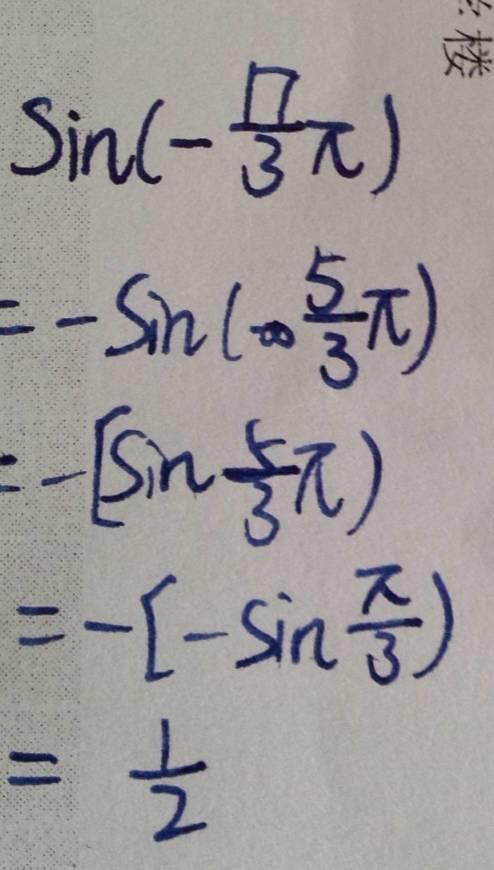 楼
Sin(-17/3 π)
= -Sin(-5/3 π)
= -[Sin 5/3 π)
= -[-Sin π/3)
= 1/2